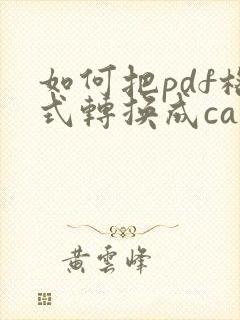 如何把pdf格
式轉換成ca
黃雲峰